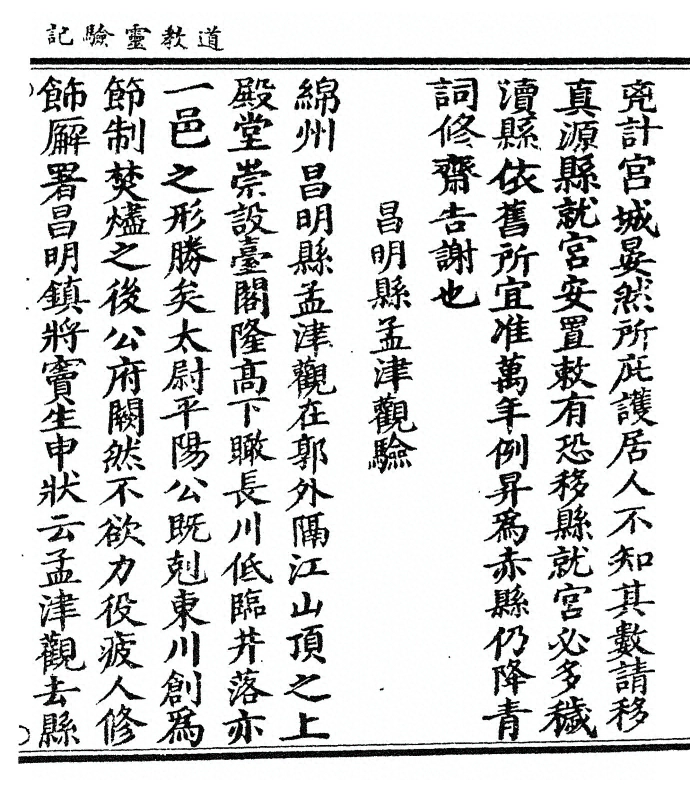 道教靈驗記
兗計宮城晏然所庇護居人不知其數請移
真源縣就宮安置敕有恐移縣就宮必多穢
瀆縣依舊所宜准萬年例昇爲赤縣仍降青
詞修齋告謝也
昌明縣孟津觀驗
綿州昌明縣孟津觀在郭外隔江山頂之上
殿堂崇設臺閣隆高下瞰長川低臨井落亦
一邑之形勝矣太尉平陽公既剋東川創爲
節制焚燼之後公府闕然不欲力役疲人修
飾廨署昌明鎮將竇生申狀云孟津觀去縣